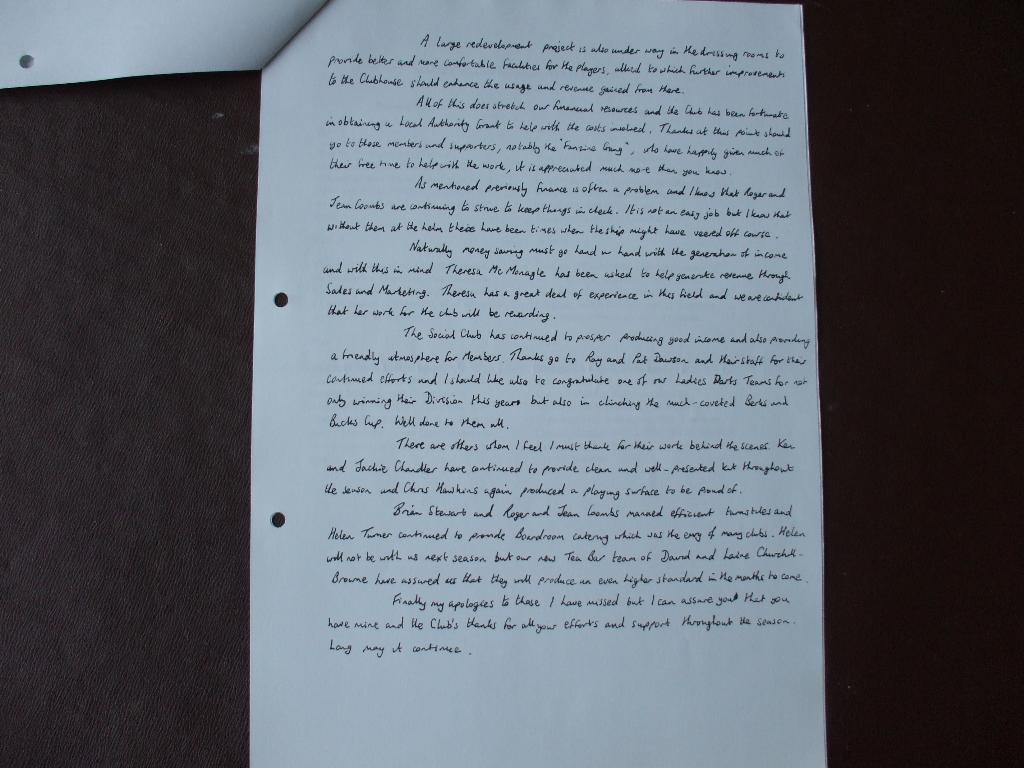 A large redevelopment project is also under way in the dressing rooms to
provide better and more comfortable facilities for the players, allied to which further improvements
to the Clubhouse should enhance the usage and revenue gained from there.
All of this does stretch our financial resources and the Club has been fortunate
in obtaining a Local Authority Grant to help with the costs involved. Thanks at this point should
go to those members and supporters, notably the "Fanzine Gang", who have happily given much of
their free time to help with the work, it is appreciated much more than you know.
As mentioned previously finance is often a problem and I know that Roger and
Jean Coombs are continuing to strive to keep things in check. It is not an easy job but I know that
without them at the helm there have been times when the ship might have veered off course.
Naturally money saving must go hand in hand with the generation of income
and with this in mind Theresa McMonagle has been asked to help generate revenue through
Sales and Marketing. Theresa has a great deal of experience in this field and we are confident
that her work for the club will be rewarding.
The Social Club has continued to prosper producing good income and also providing
a friendly atmosphere for Members. Thanks go to Ray and Pat Dawson and their staff for their
continued efforts and I should like also to congratulate one of our Ladies Darts Teams for not
only winning their Division this year but also in clinching the much-coveted Berks and
Bucks Cup. Well done to them all.
There are others whom I feel I must thank for their work behind the scenes. Ken
and Jackie Chandler have continued to provide clean and well-presented kit throughout
the season and Chris Hawkins again produced a playing surface to be proud of.
Brian Stewart and Roger and Jean Coombs manned efficient turnstiles and
Helen Turner continued to provide Boardroom catering which was the envy of many clubs. Helen
will not be with us next season but our new Tea Bar team of David and Laine Churchill-
Browne have assured us that they will produce an even higher standard in the months to come.
Finally my apologies to those I have missed but I can assure you that you
have mine and the Club's thanks for all your efforts and support throughout the season.
Long may it continue.